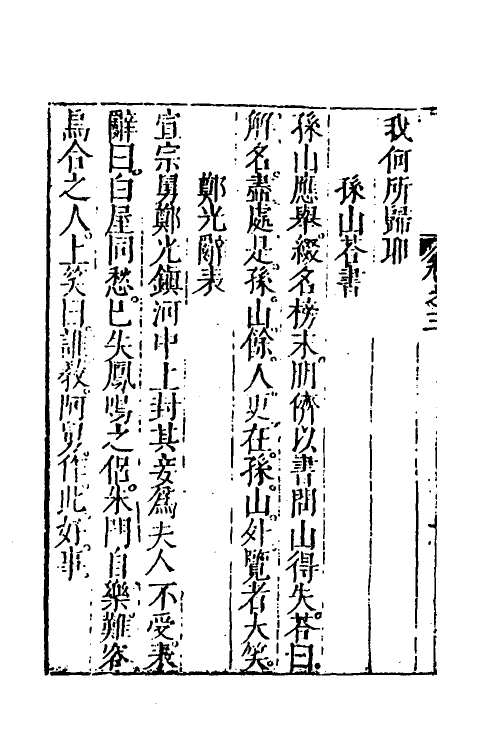 我何所歸耶
孫山荅書
孫山應舉。綴名榜末。朋儕以書問山得失。荅曰。
解名盡處是孫山。餘人更在孫山外。覽者大笑。
鄭光辭表
宣宗舅鄭光鎮河中。上封其妾爲夫人。不受。表
辭曰。白屋同愁。已失鳳鳴之侶。朱門自樂。難容
烏合之人。上笑曰。誰教阿舅作此好事。
卷之三